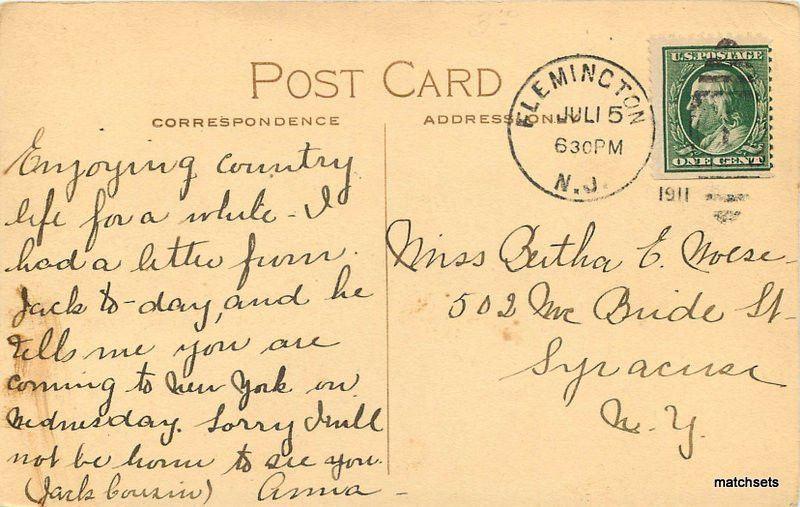 POST CARD
CORRESPONDENCE
ADDRESS ONLY
FLEMINGTON
JUL 15
630PM
N.J.
1911
U.S. POSTAGE
ONE CENT
Enjoying country
life for a while - I
had a letter from
Jack to-day, and he
tells me you are
coming to New York on
Wednesday. Sorry I will
not be home to see you.
(Jack Cousin) Anna -
Miss Bertha E. Morse
502 Mc Bride St.
Syracuse
N. Y.
matchsets